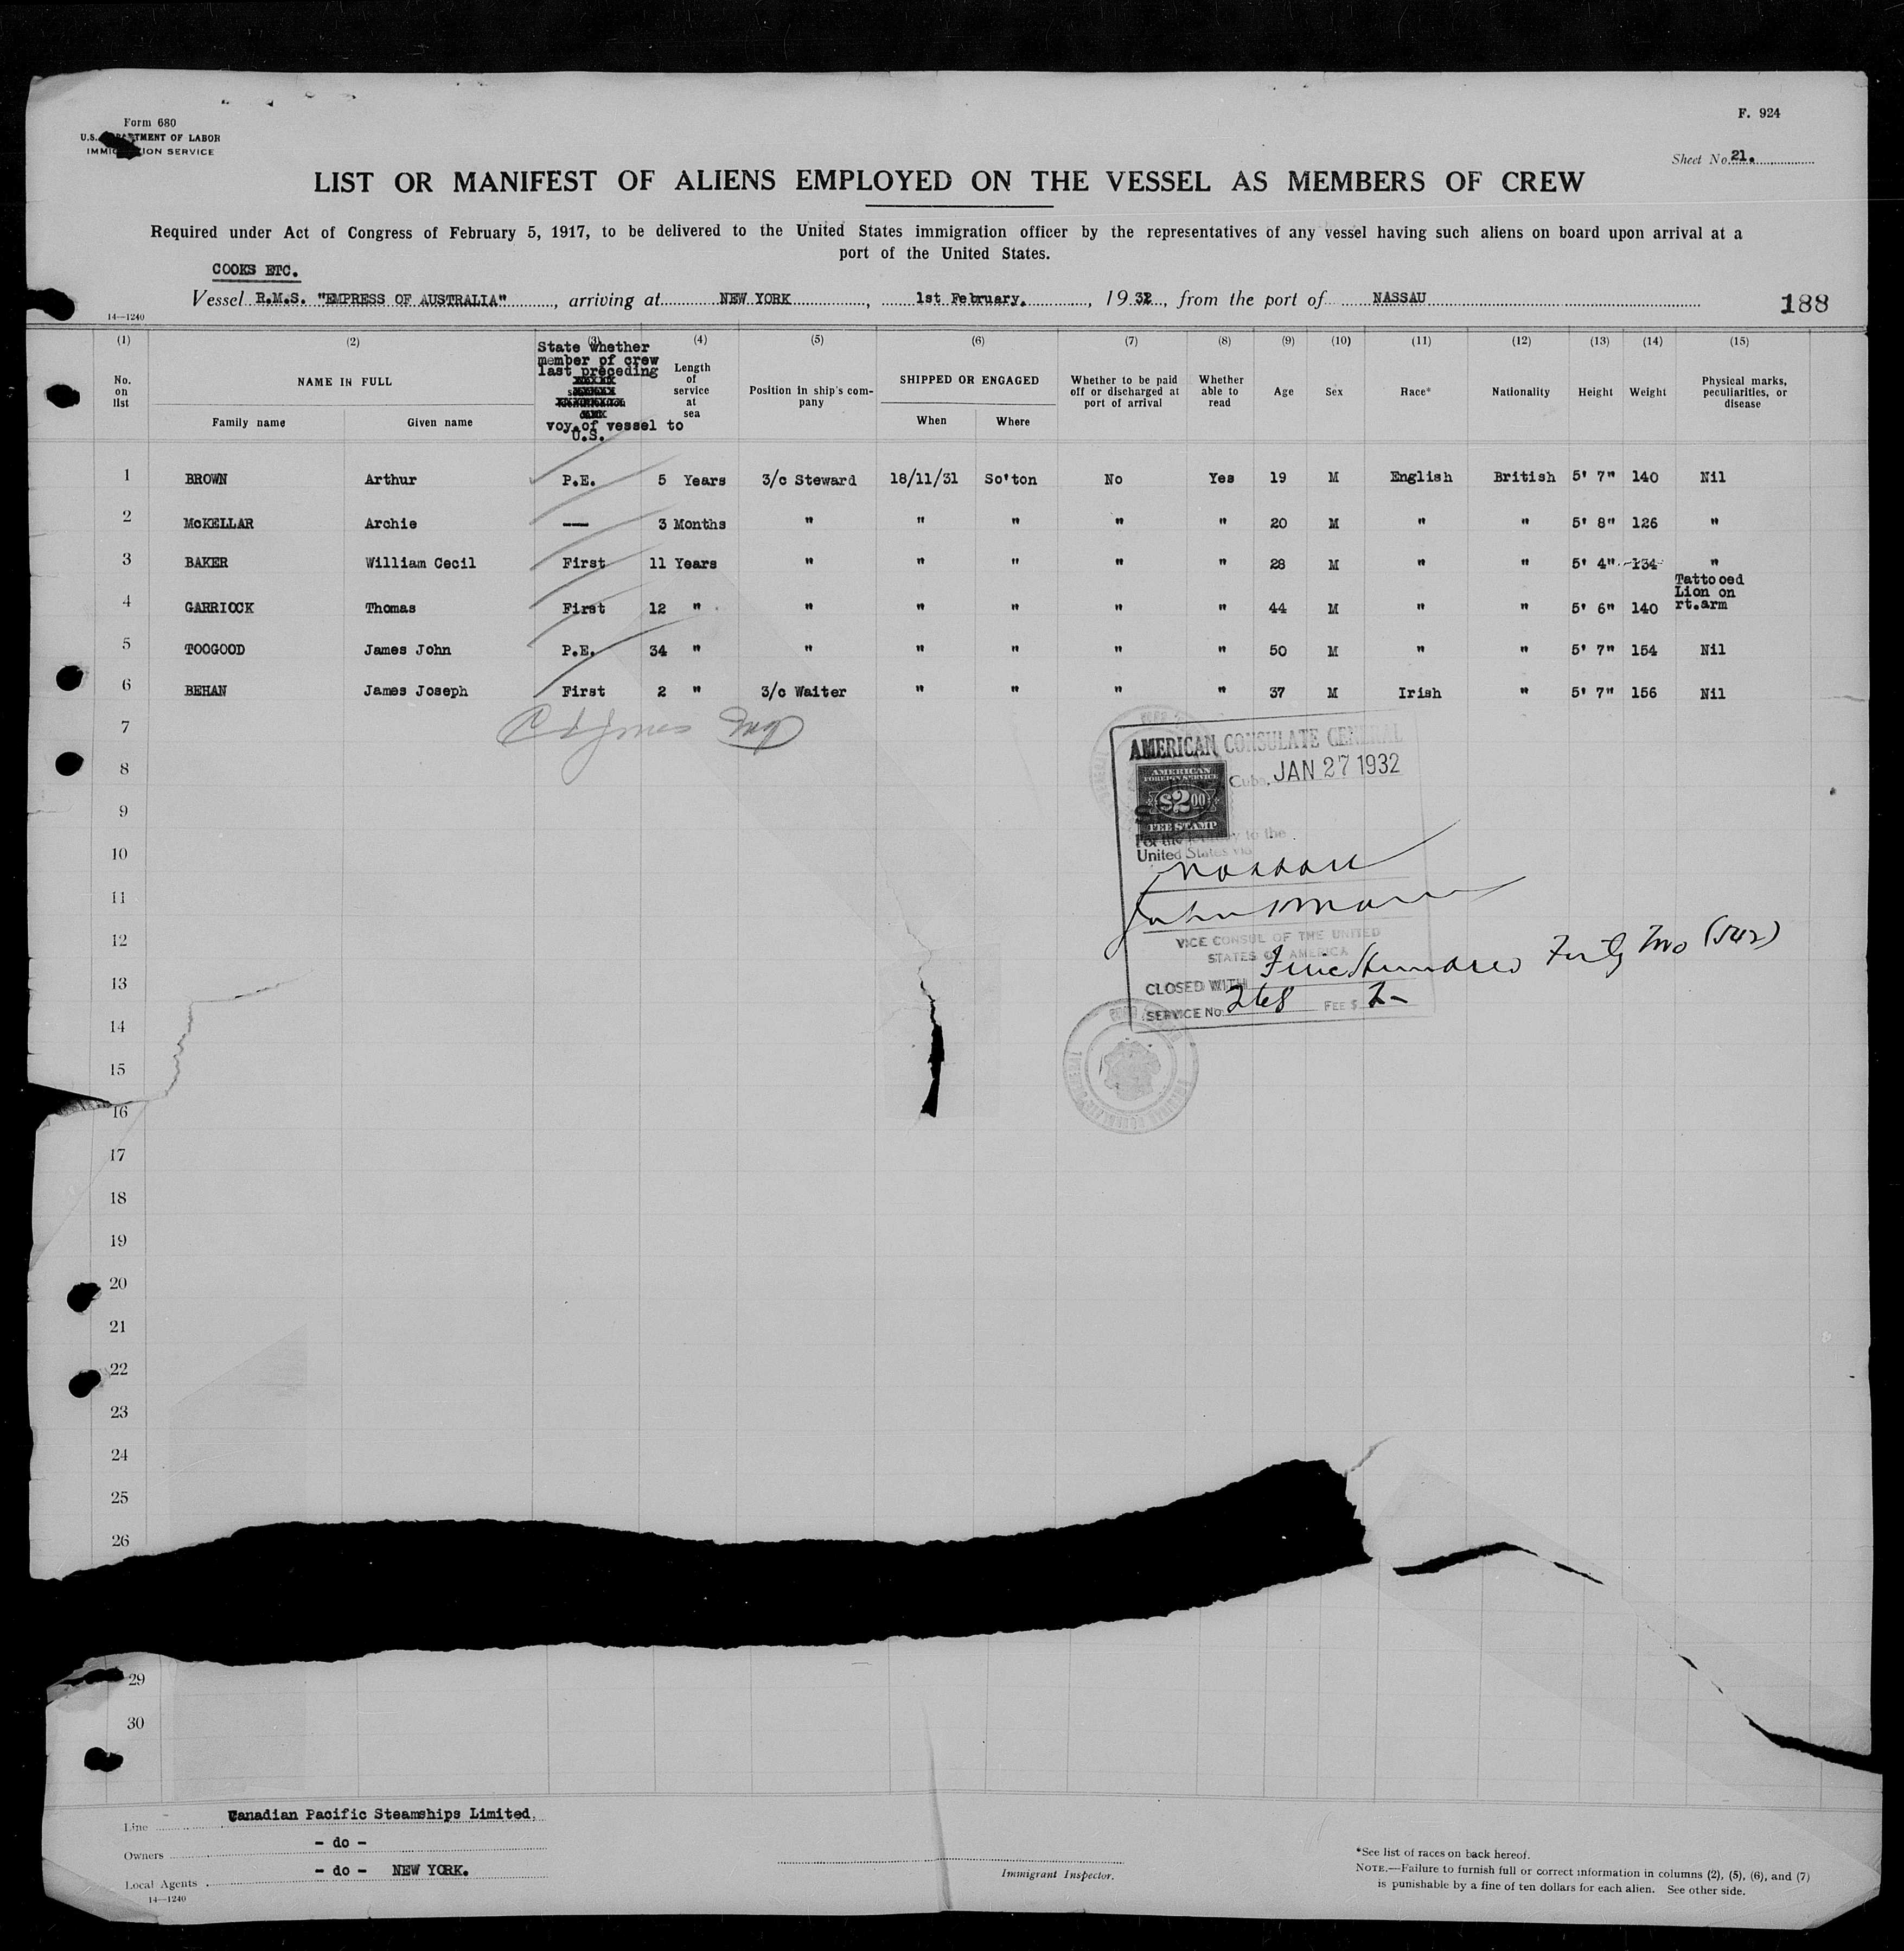 Form 680
U.S. DEPARTMENT OF LABOR
IMMIGRATION SERVICE
F. 924
Sheet No. 21.
LIST OR MANIFEST OF ALIENS EMPLOYED ON THE VESSEL AS MEMBERS OF CREW
Required under Act of Congress of February 5, 1917, to be delivered to the United States immigration officer by the representatives of any vessel having such aliens on board upon arrival at a
port of the United States.
COOKS ETC.
Vessel R.M.S. "EMPRESS OF AUSTRALIA", arriving at NEW YORK, 1st February, 1932, from the port of NASSAU
188
14—1240
(1) (2) (3) (4) (5) (6) (7) (8) (9) (10) (11) (12) (13) (14) (15)
No. on list
NAME IN FULL
Family name Given name
State whether member of crew last preceding voy. of vessel to U.S.
Length of service at sea
Position in ship's company
SHIPPED OR ENGAGED
When Where
Whether to be paid off or discharged at port of arrival
Whether able to read
Age Sex Race* Nationality Height Weight
Physical marks, peculiarities, or disease
1 BROWN Arthur P.E. 5 Years 3/c Steward 18/11/31 So'ton No Yes 19 M English British 5' 7" 140 Nil
2 McKELLAR Archie — 3 Months " " " " " 20 M " " 5' 8" 126 "
3 BAKER William Cecil First 11 Years " " " " " 28 M " " 5' 4" 134 "
4 GARRIOCK Thomas First 12 " " " " " " 44 M " " 5' 6" 140 Tattooed Lion on rt.arm
5 TOOGOOD James John P.E. 34 " " " " " " 50 M " " 5' 7" 154 Nil
6 BEHAN James Joseph First 2 " 3/c Waiter " " " " 37 M Irish " 5' 7" 156 Nil
7
8
9
10
11
12
13
14
15
16
17
18
19
20
21
22
23
24
25
26
29
30
AMERICAN CONSULATE GENERAL
Cuba, JAN 27 1932
AMERICAN
FOREIGN SERVICE
$2.00
FEE STAMP
For the journey to the
United States via
Nassau
VICE CONSUL OF THE UNITED
STATES OF AMERICA
CLOSED WITH Five Hundred Forty Two (542)
SERVICE No. 268 FEE $ 2-
Line Canadian Pacific Steamships Limited.
Owners - do -
Local Agents - do - NEW YORK.
14—1240
Immigrant Inspector.
*See list of races on back hereof.
NOTE.—Failure to furnish full or correct information in columns (2), (5), (6), and (7)
is punishable by a fine of ten dollars for each alien. See other side.